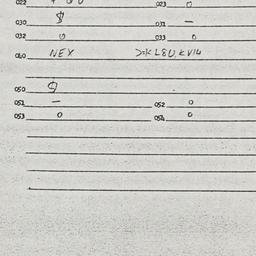 022 023 0
030 $ 031 —
032 0 033 0
040 NEX
050 $
051 — 052 0
053 0 054 0